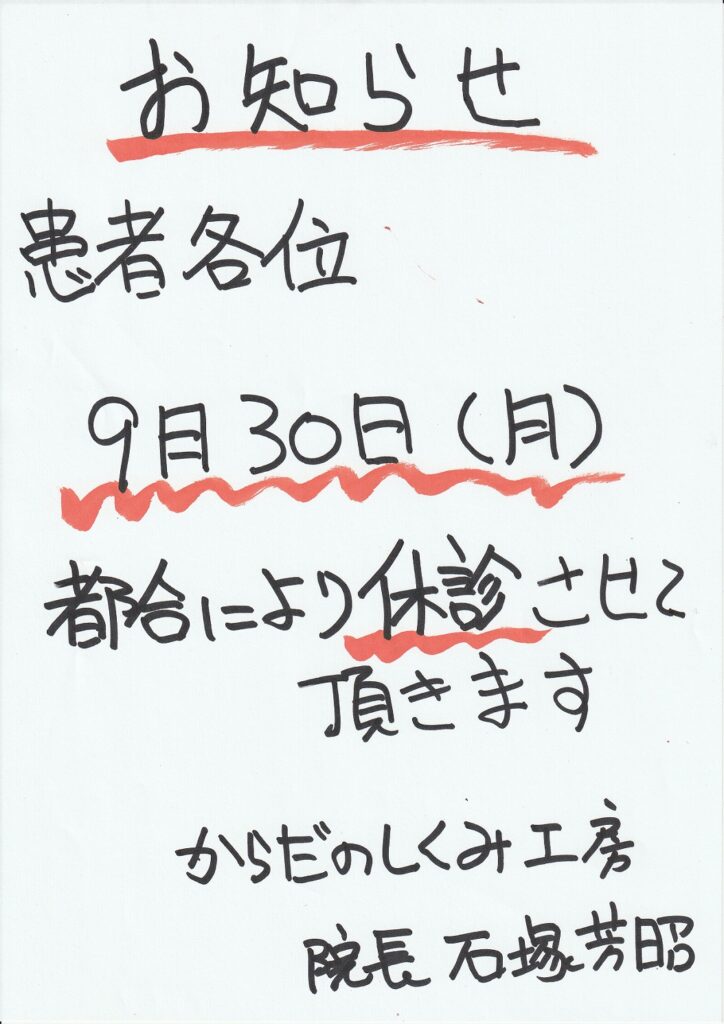 お知らせ
患者各位
9月30日(月)
都合により休診させて
頂きます
からだのしくみ工房
院長 石塚芳昭